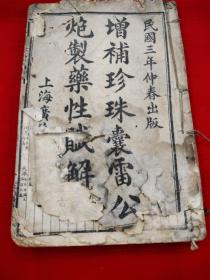 民國三年仲春出版
增補珍珠囊雷公
炮製藥性賦解
上海廣